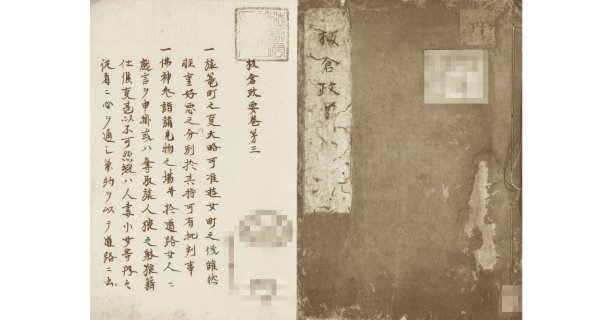 板倉政
板倉政要巻第三
一旅篭町之事大略可准遊女町之儀雖然
軽重好悪之分別於其時可有批判事
一佛神参詣諸見物之場并於道路女人ニ
戯言ヲ申掛或ハ奪取旅人猥之躰狼藉
仕候事甚以不可然縦ハ人妻小女等内々
従者ニ心ヲ通シ兼約ヲ以テ道路ニ出